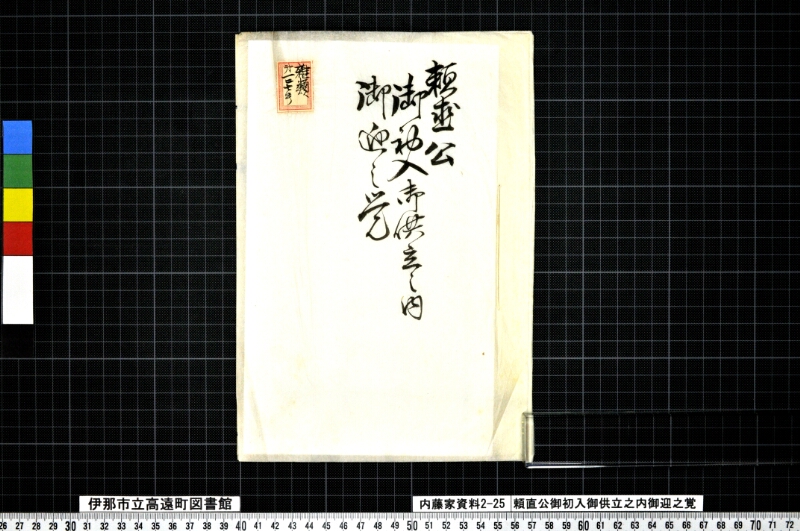 頼直公
御初入御供立之内
御迎之覚
雑類
一四七号
伊那市立高遠町図書館
内藤家資料2-25 頼直公御初入御供立之内御迎之覚
26 27 28 29 30 31 32 33 34 35 36 37 38 39 40 41 42 43 44 45 46 47 48 49 50 51 52 53 54 55 56 57 58 59 60 61 62 63 64 65 66 67 68 69 70 71 72